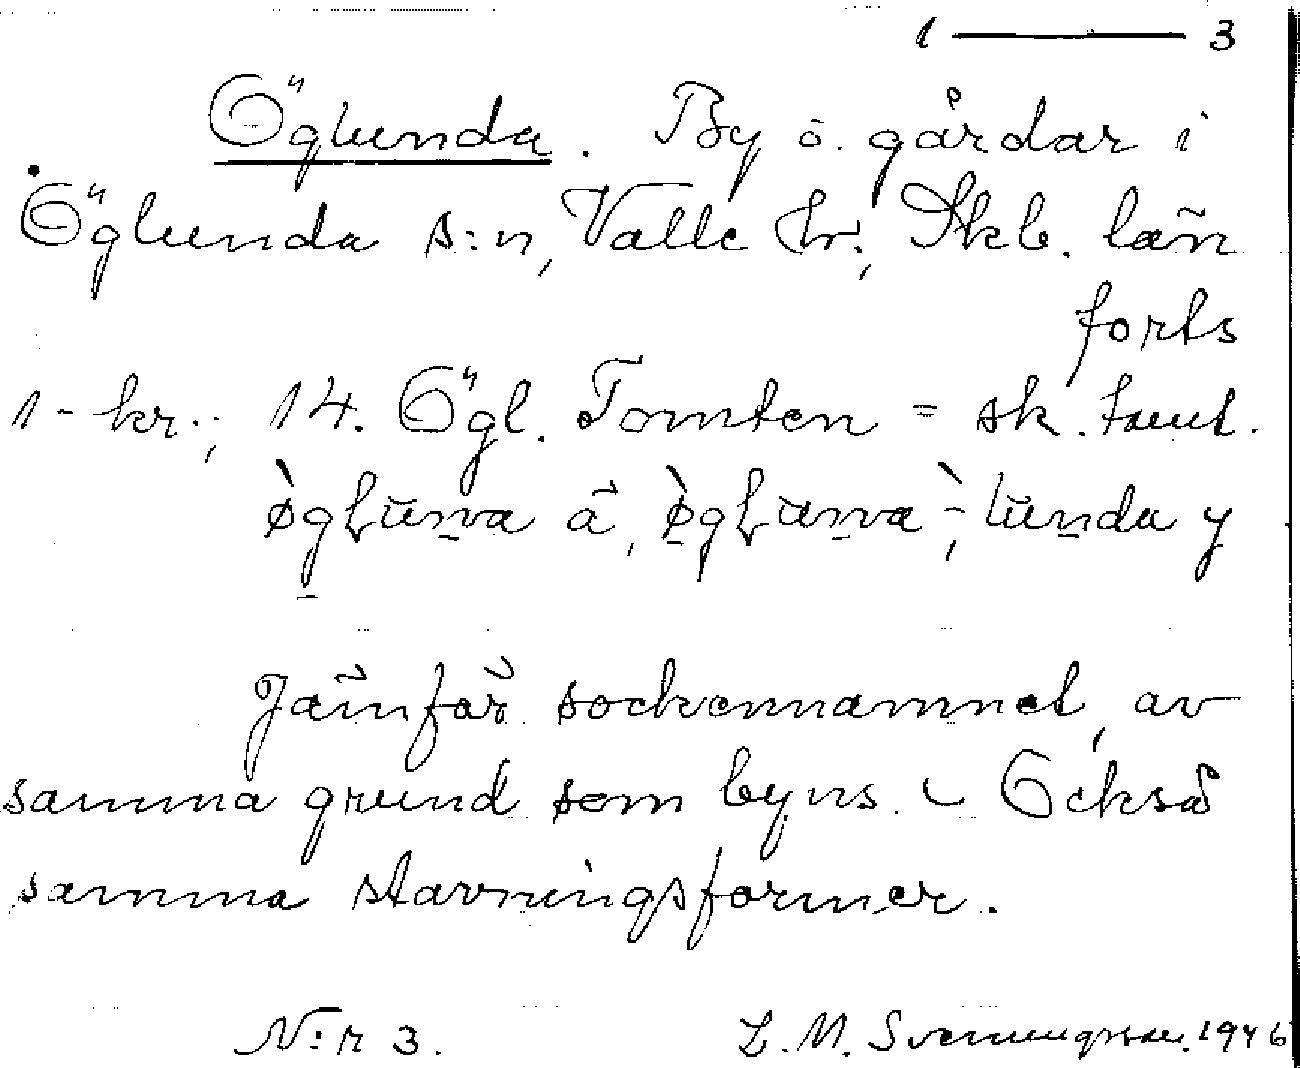 1 — 3
Öglunda. By o. gårdar i
Öglunda s:n, Valle hr., Skb. län
forts
1- kr.; 14. Ögl. Tomten = sk. tomt.
Jämför sockennamnet, av
samma grund som byns. – Också
samma stavningsformer.
N:r 3. L. M. Svenungsson. 1946